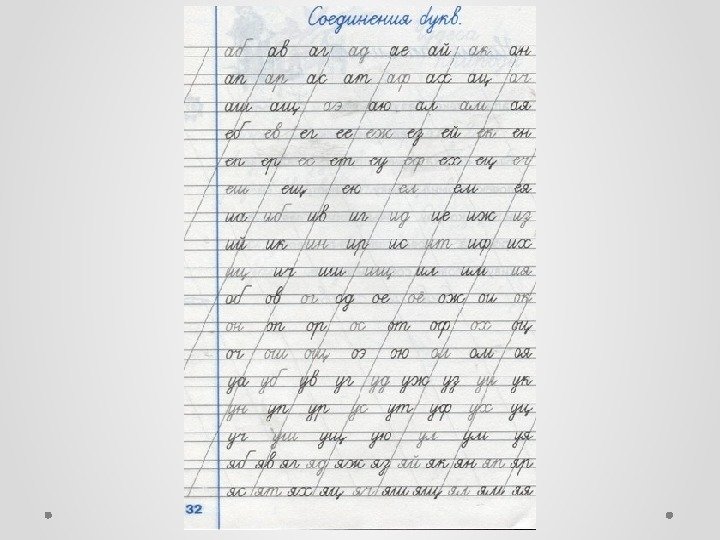 Соединения букв.
аб ав аг ад ае ай ак ан
ап ар ас ат аф ах ац ач
аш ащ аэ аю ал ам ая
еб ев ег ее еж ез ей ек ен
еп ер ес ет еу еф ех ец еч
еш ещ ею ел ем ея
иа иб ив иг ид ие иж из
ий ик ин ир ис ит иф их
иц ич иш ищ ил им ия
об ов ог од ое ое ож ои ок
он оп ор ос от оф ох оц
оч ош ощ оэ ою ол ом оя
уа уб ув уг уд уж уз уи ук
ун уп ур ус ут уф ух уц
уч уш ущ ую ул ум уя
яб яв яг яд яж яз яй як ян яп яр
яс ят ях яц яч яш ящ ял ям яя
32